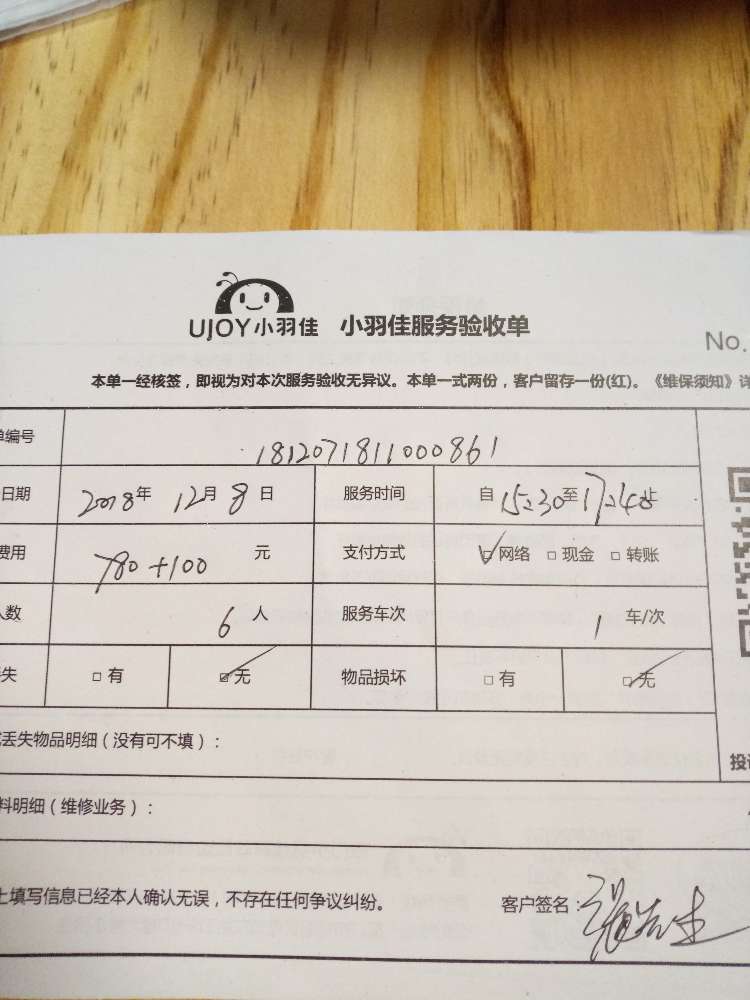 UJOY小羽佳 小羽佳服务验收单
No.
本单一经核签，即视为对本次服务验收无异议。本单一式两份，客户留存一份(红)。《维保须知》详
单编号 1812071811000861
日期 2018年 12月 8日 服务时间 自 15:30至17:40止
费用 780+100 元 支付方式 网络 现金 转账
人数 6人 服务车次 1 车/次
失 有 无 物品损坏 有 无
丢失物品明细（没有可不填）：
投诉
料明细（维修业务）：
上填写信息已经本人确认无误，不存在任何争议纠纷。 客户签名：张先生